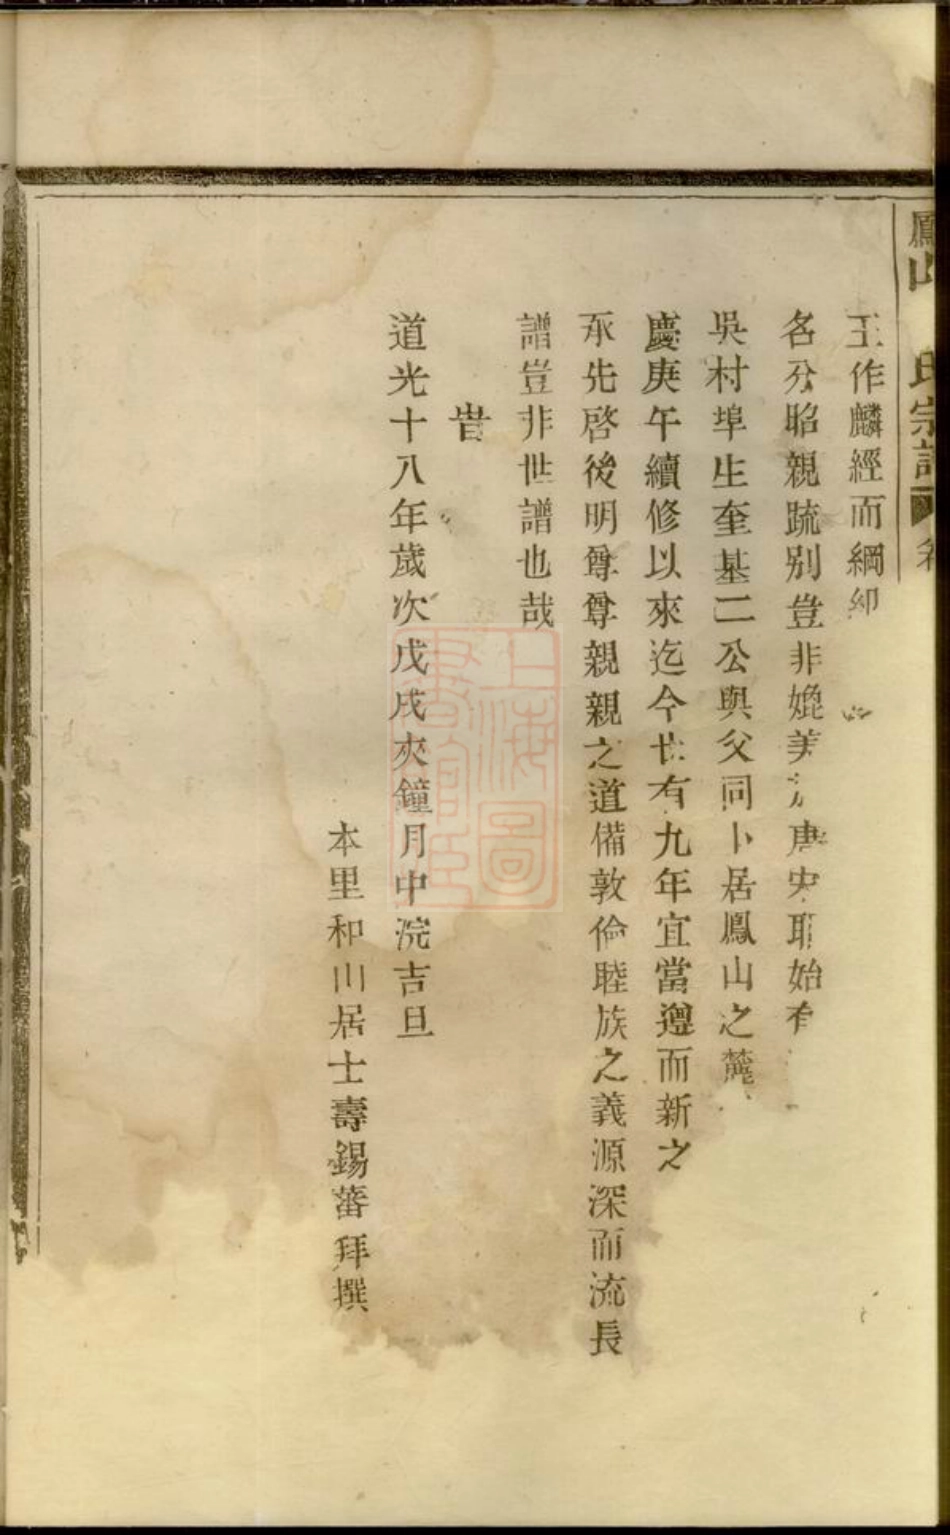 鳳山 氏宗譜 卷
王作麟經而綱
名分昭親疏别豈非媲美 唐史耶始有
吳村埠生奎基二公與父同卜居鳳山之麓
慶庚午續修以來迄今廿有九年宜當遵而新之
承先啓後明尊尊親親之道備敦倫睦族之義源深而流長
譜豈非世譜也哉
旹
道光十八年歲次戊戌夾鐘月中浣吉旦
本里和川居士壽錫蕃拜撰
上海圖書館藏